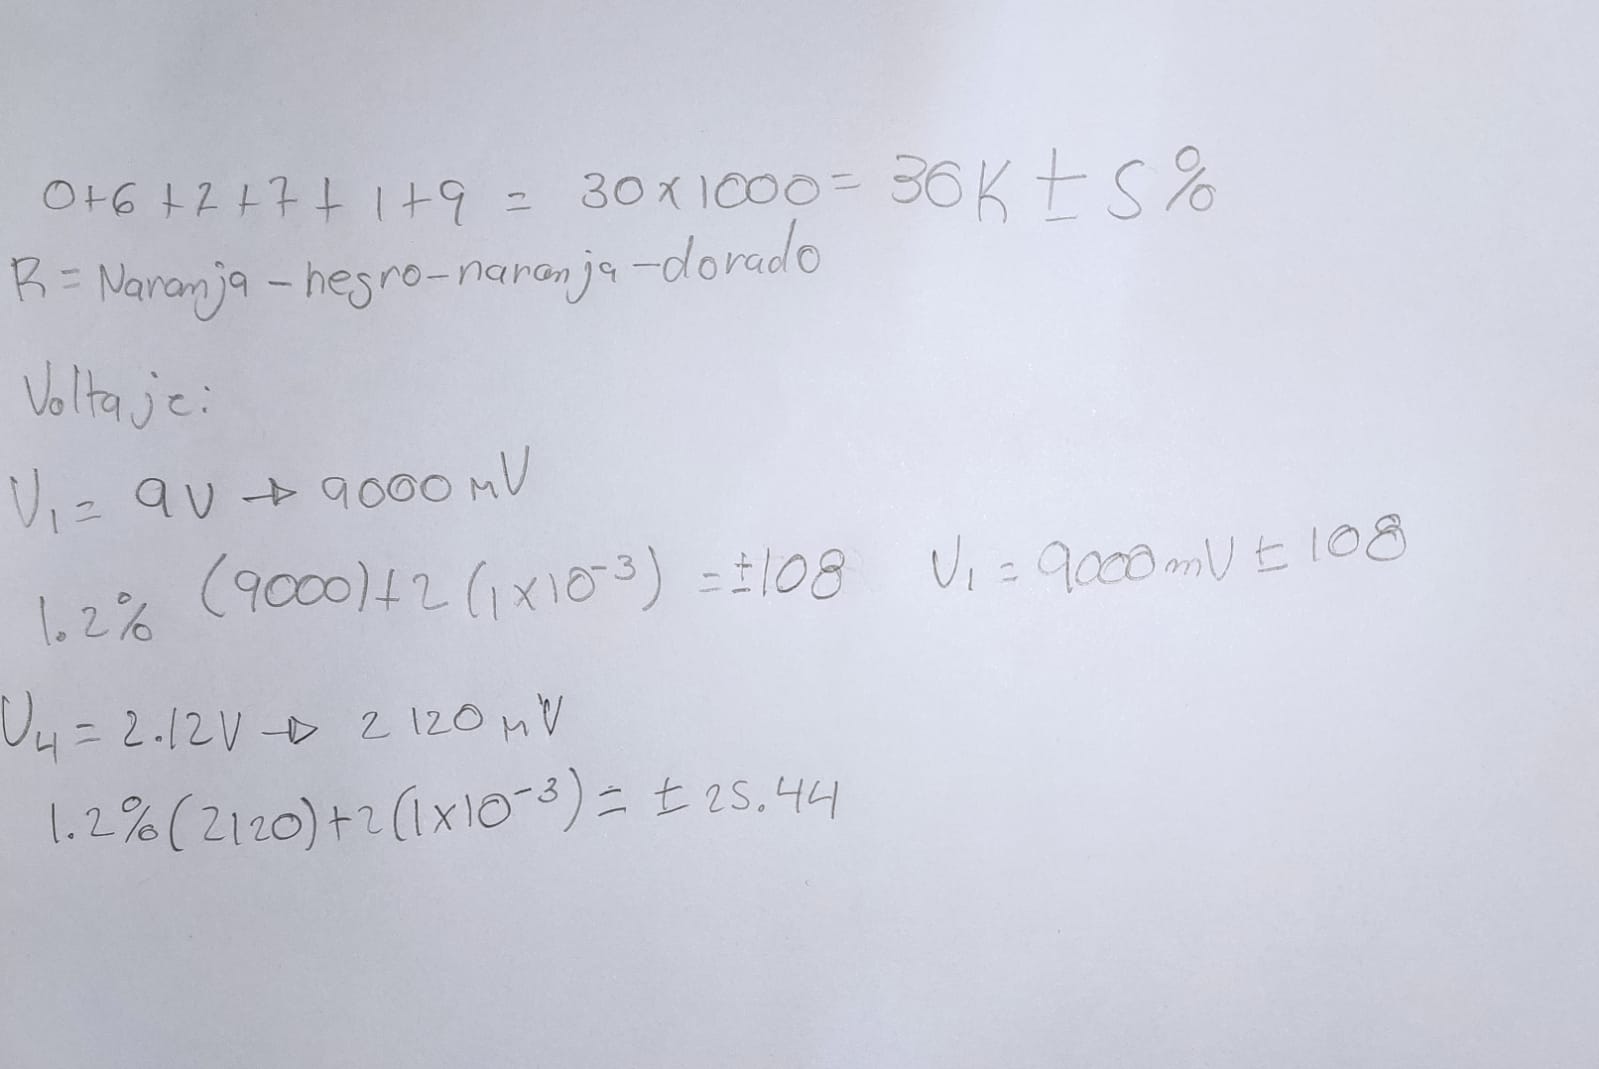 0+6+2+7+1+9 = 30x1000= 30K ± 5%
R = Naranja - negro - naranja - dorado
Voltaje:
V₁= 9V → 9000 mV
1.2% (9000)+2(1x10⁻³) = ±108 V₁ = 9000mV ± 108
V₄ = 2.12V → 2120 mV
1.2%(2120)+2(1x10⁻³) = ± 25.44